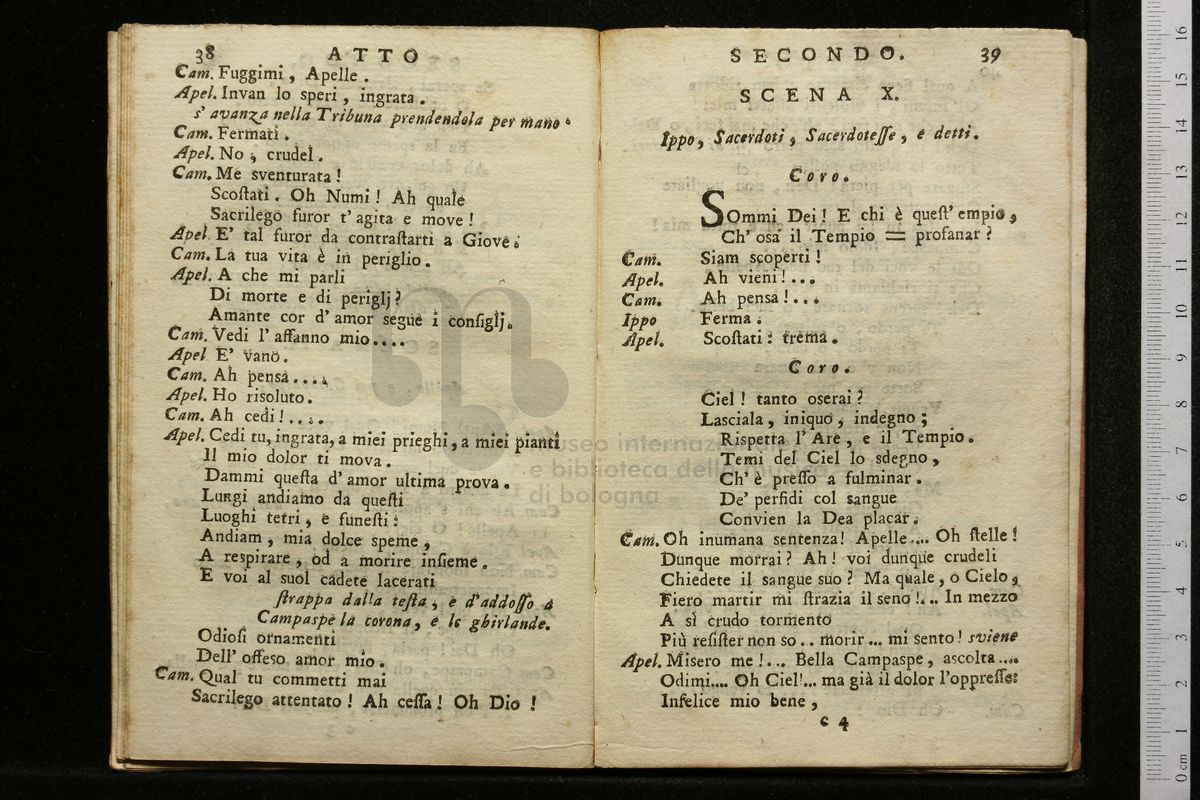 38 ATTO
Cam. Fuggimi, Apelle.
Apel. Invan lo speri, ingrata.
s' avanza nella Tribuna prendendola per mano.
Cam. Fermati.
Apel. No, crudel.
Cam. Me sventurata!
Scoſtati. Oh Numi! Ah quale
Sacrilego furor t' agita e move!
Apel. E' tal furor da contraſtarti a Giove.
Cam. La tua vita è in periglio.
Apel. A che mi parli
Di morte e di periglj?
Amante cor d' amor segue i conſiglj.
Cam. Vedi l' affanno mio....
Apel E' vano.
Cam. Ah pensa....
Apel. Ho risoluto.
Cam. Ah cedi!....
Apel. Cedi tu, ingrata, a miei prieghi, a miei pianti
Il mio dolor ti mova.
Dammi queſta d' amor ultima prova.
Lungi andiamo da queſti
Luoghi tetri, e funeſti:
Andiam, mia dolce speme,
A respirare, od a morire inſieme.
E voi al suol cadete lacerati
ſtrappa dalla teſta, e d'addoſſo a
Campaspe la corona, e le ghirlande.
Odioſi ornamenti
Dell' offeso amor mio.
Cam. Qual tu commetti mai
Sacrilego attentato! Ah ceſſa! Oh Dio!
SECONDO. 39
SCENA X.
Ippo, Sacerdoti, Sacerdoteſſe, e detti.
Coro.
SOmmi Dei! E chi è queſt' empio,
Ch' osa il Tempio = profanar?
Cam. Siam scoperti!
Apel. Ah vieni!...
Cam. Ah pensa!...
Ippo Ferma.
Apel. Scoſtati: trema.
Coro.
Ciel! tanto oserai?
Lasciala, iniquo, indegno;
Rispetta l' Are, e il Tempio.
Temi del Ciel lo sdegno,
Ch' è preſſo a fulminar.
De' perfidi col sangue
Convien la Dea placar.
Cam. Oh inumana sentenza! Apelle.... Oh ſtelle!
Dunque morrai? Ah! voi dunque crudeli
Chiedete il sangue suo? Ma quale, o Cielo,
Fiero martir mi ſtrazia il seno!... In mezzo
A sì crudo tormento
Più reſiſter non so.. morir... mi sento! sviene
Apel. Misero me!... Bella Campaspe, ascolta....
Odimi.... Oh Ciel!... ma già il dolor l'oppreſſe:
Infelice mio bene,
C 4
museo internazionale
e biblioteca della musica
di bologna
0 cm 1 2 3 4 5 6 7 8 9 10 11 12 13 14 15 16